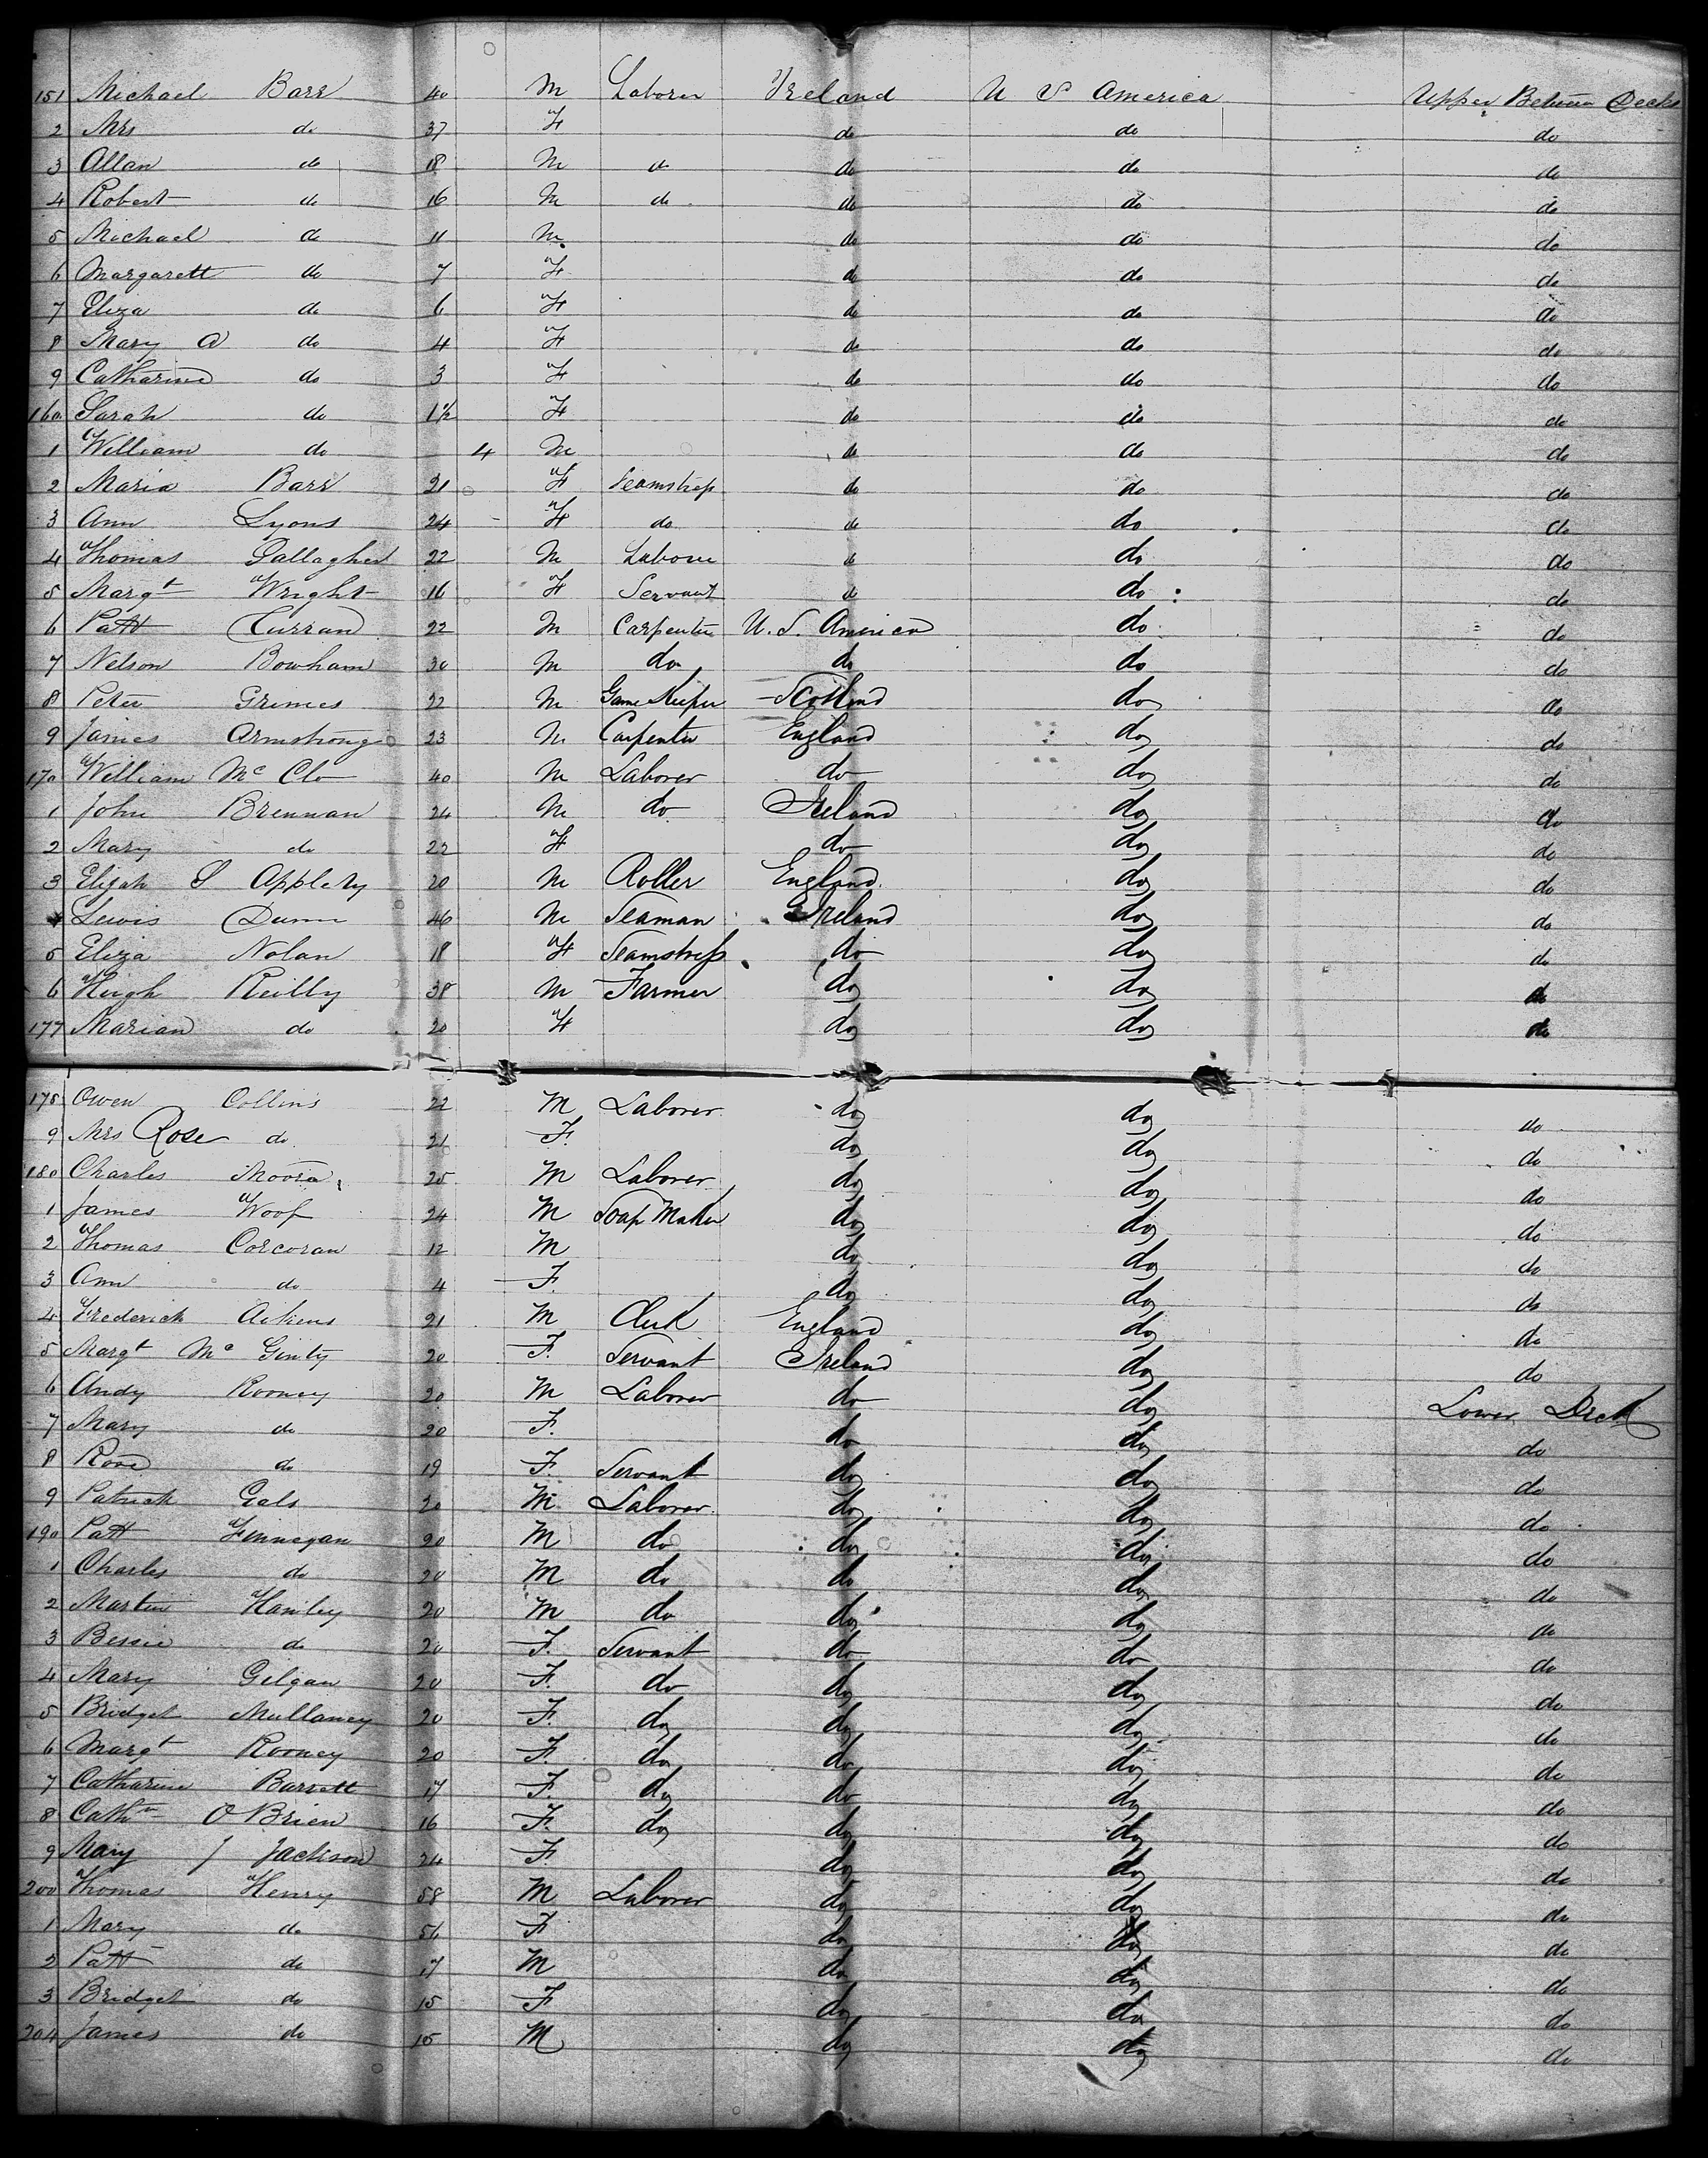 151 Michael Barr 40 M Laborer Ireland U S America Upper Between Decks
2 Mrs do 37 F do do do
3 Allan do 18 M do do do do
4 Robert do 16 M do do do do
5 Michael do 11 M do do do
6 Margarett do 7 F do do do
7 Eliza do 6 F do do do
8 Mary A do 4 F do do do
9 Catharine do 3 F do do do
160 Sarah do 1½ F do do do
1 William do 4 M do do do
2 Maria Barr 21 F Seamstress do do do
3 Ann Lyons 24 F do do do do
4 Thomas Gallagher 22 M Laborer do do do
5 Margt Wright 16 F Servant do do do
6 Patt Curran 22 M Carpenter U. S. America do do
7 Nelson Bowham 30 M do do do do
8 Peter Grimes 22 M Game Keeper Scotland do do
9 James Armstrong 23 M Carpenter England do do
170 William Mc Clo 40 M Laborer do do do
1 John Brennan 24 M do Ireland do do
2 Mary do 22 F do do do
3 Elijah S Applety 20 M Roller England do do
4 Lewis Dunn 46 M Seaman Ireland do do
5 Eliza Nolan 18 F Seamstress do do do
6 Hugh Reilly 38 M Farmer do do do
177 Marian do 20 F do do do
178 Owen Collins 22 M Laborer do do do
9 Mrs Rose do 21 F. do do do
180 Charles Moora 25 M Laborer do do do
1 James Woof 24 M Soap Maker do do do
2 Thomas Corcoran 12 M do do do
3 Ann do 4 F. do do do
4 Frederick Aikens 21 M Clerk England do do
5 Margt Mc Ginty 20 F. Servant Ireland do do
6 Andy Rooney 20 M Laborer do do Lower Deck
7 Mary do 20 F. do do do
8 Rose do 19 F. Servant do do do
9 Patrick Gals 20 M Laborer do do do
190 Patt Finnegan 20 M do do do do
1 Charles do 20 M do do do do
2 Martin Hanley 20 M do do do do
3 Bessie do 20 F. Servant do do do
4 Mary Gilgan 20 F. do do do do
5 Bridget Mullaney 20 F. do do do do
6 Margt Rooney 20 F. do do do do
7 Catharine Barrett 17 F. do do do do
8 Cathn O Brien 16 F. do do do do
9 Mary J Jackson 24 F. do do do
200 Thomas Henry 58 M Laborer do do do
1 Mary do 56 F do do do
2 Patt do 17 M do do do
3 Bridget do 15 F do do do
204 James do 15 M do do do